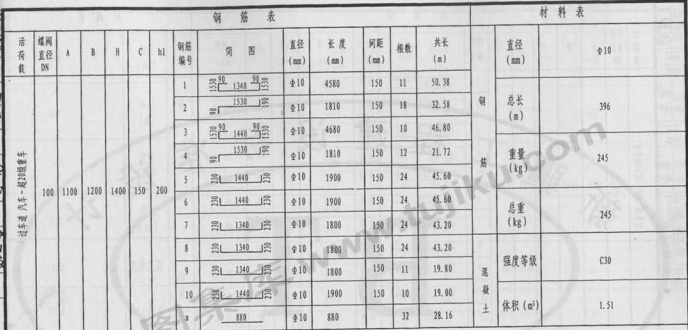 钢筋表 材料表
活荷载 蝶阀直径DN A B H C h1 钢筋编号 简图 直径(mm) 长度(mm) 间距(mm) 根数 共长(m) 直径(mm) Φ10
过车道 汽车-超20级重车 100 1100 1200 1400 150 200
1 1530 90 1340 90 1530 Φ10 4580 150 11 50.38
2 90 1530 190 Φ10 1810 150 18 32.58
3 1530 90 1440 90 1530 Φ10 4680 150 10 46.80
4 90 1530 190 Φ10 1810 150 12 21.72
5 230 1440 230 Φ10 1900 150 24 45.60
6 230 1440 230 Φ10 1900 150 24 45.60
7 230 1340 230 Φ10 1800 150 24 43.20
8 230 1340 230 Φ10 1800 150 24 43.20
9 230 1340 230 Φ10 1800 150 11 19.80
10 230 1440 230 Φ10 1900 150 10 19.00
a 880 Φ10 880 32 28.16
钢筋 总长(m) 396
重量(kg) 245
总重(kg) 245
混凝土 强度等级 C30
体积(m³) 1.51
图集库 www.tujiku.com